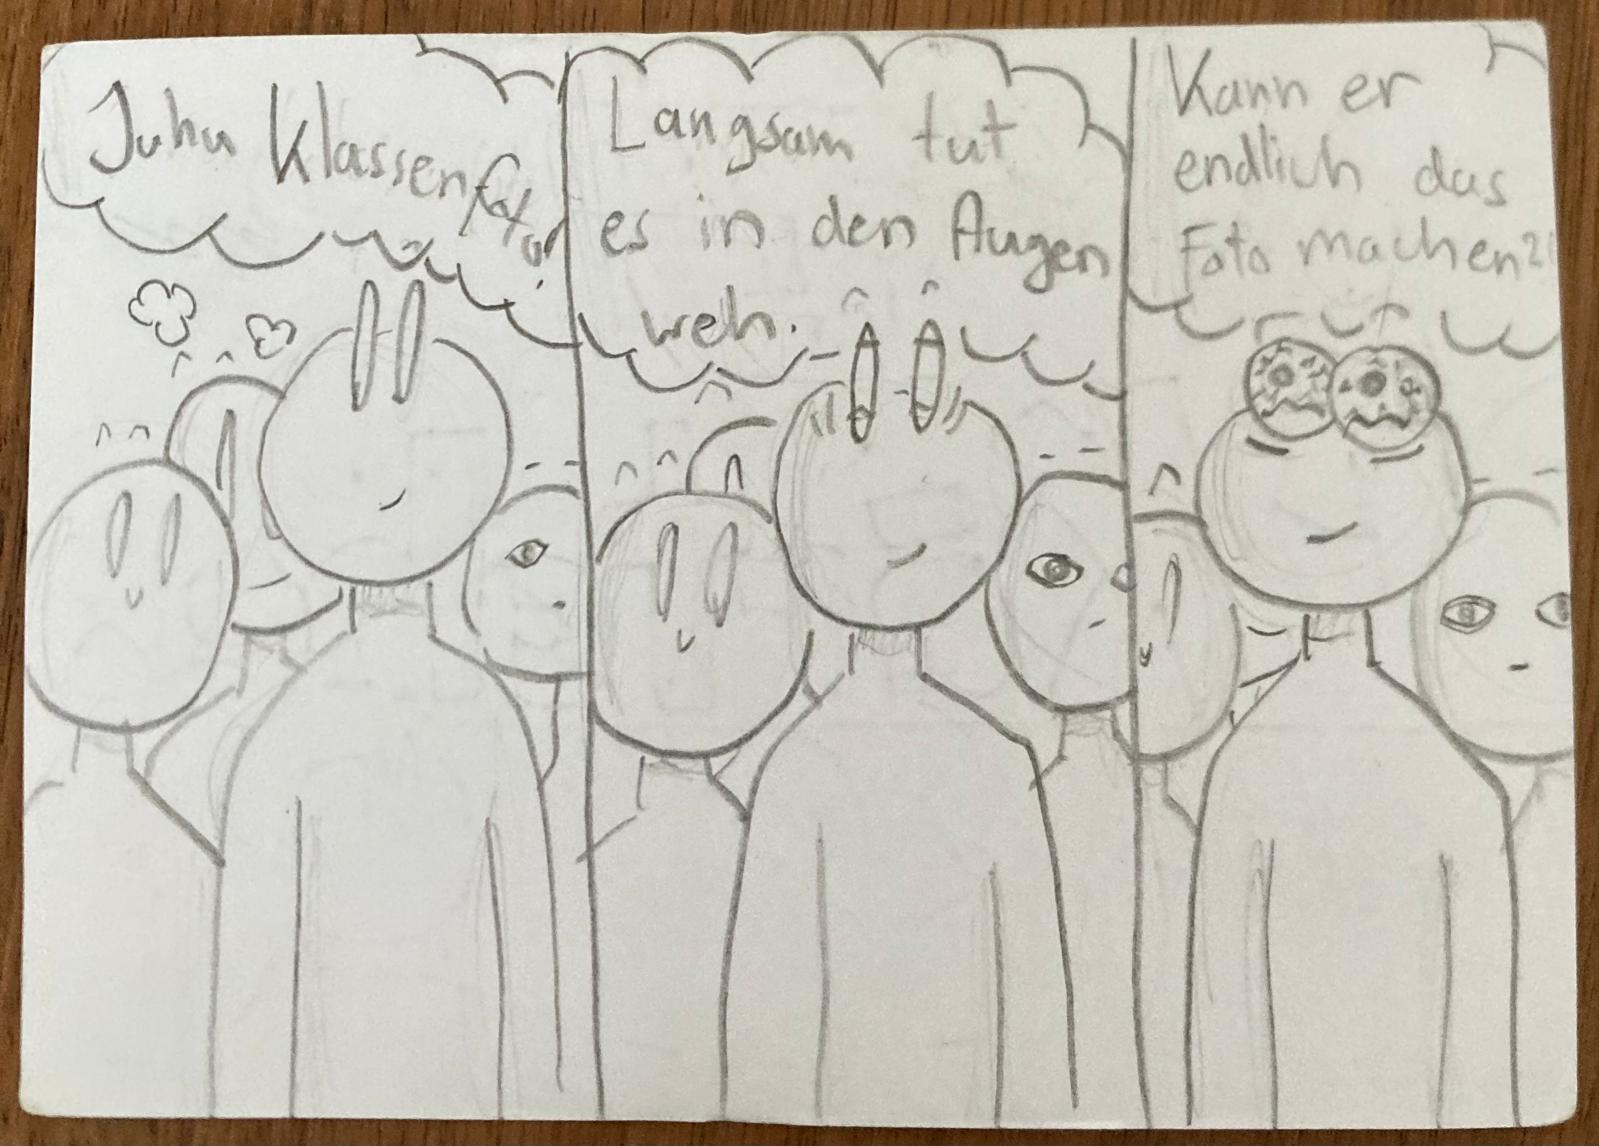 Juhu Klassenfoto!
Langsam tut
es in den Augen
weh.
Kann er
endlich das
Foto machen?!